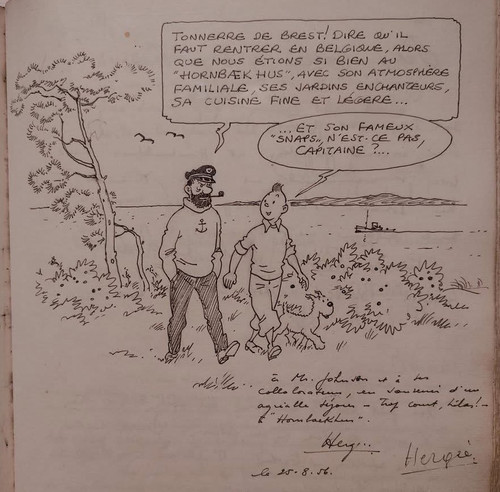 TONNERRE DE BREST! DIRE QU'IL
FAUT RENTRER EN BELGIQUE, ALORS
QUE NOUS ÉTIONS SI BIEN AU
"HORNBÆK HUS", AVEC SON ATMOSPHÈRE
FAMILIALE, SES JARDINS ENCHANTEURS,
SA CUISINE FINE ET LÉGÈRE...
...ET SON FAMEUX
"SNAPS", N'EST-CE PAS,
CAPITAINE?...
à Mr. Johnson et à ses
collaborateurs, en souvenir d'un
agréable séjour - trop court, hélas! -
à "Hornbaekhus".
Hergé
Hergé.
le 25-8.56.